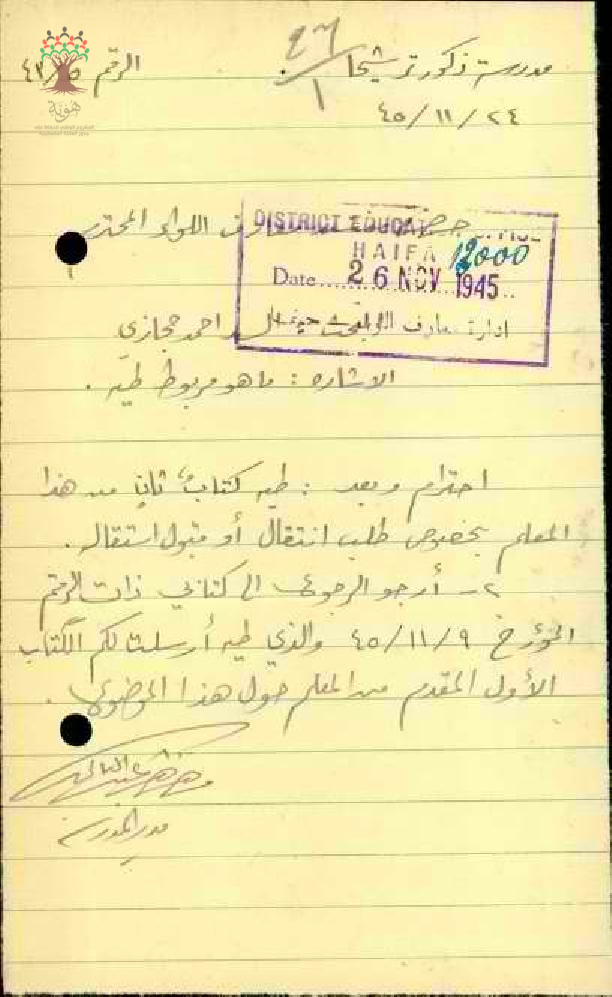 مدرسة ذكور ترشيحا
٢٦/١
الرقم ٤٢/٥
٤٥/١١/٢٤
حضرة معارف اللواء المحترم
DISTRICT EDUCATION OFFICE
HAIFA 12000
Date 26 NOV 1945
ادارة معارف اللواء حيفا
السيد احمد حجازي
الاشاره : ما هو مربوط طيه .
احترام وبعد : طيه كتاب ثانٍ من هذا
المعلم بخصوص طلب انتقال أو قبول استقاله .
٢ - أرجو الرجوع الى كتابي ذات الرقم
المؤرخ ٤٥/١١/٩ والذي طيه أرسلت لكم الكتاب
الأول المقدم من المعلم حول هذا الموضوع .
مدير المدرسة
هوية